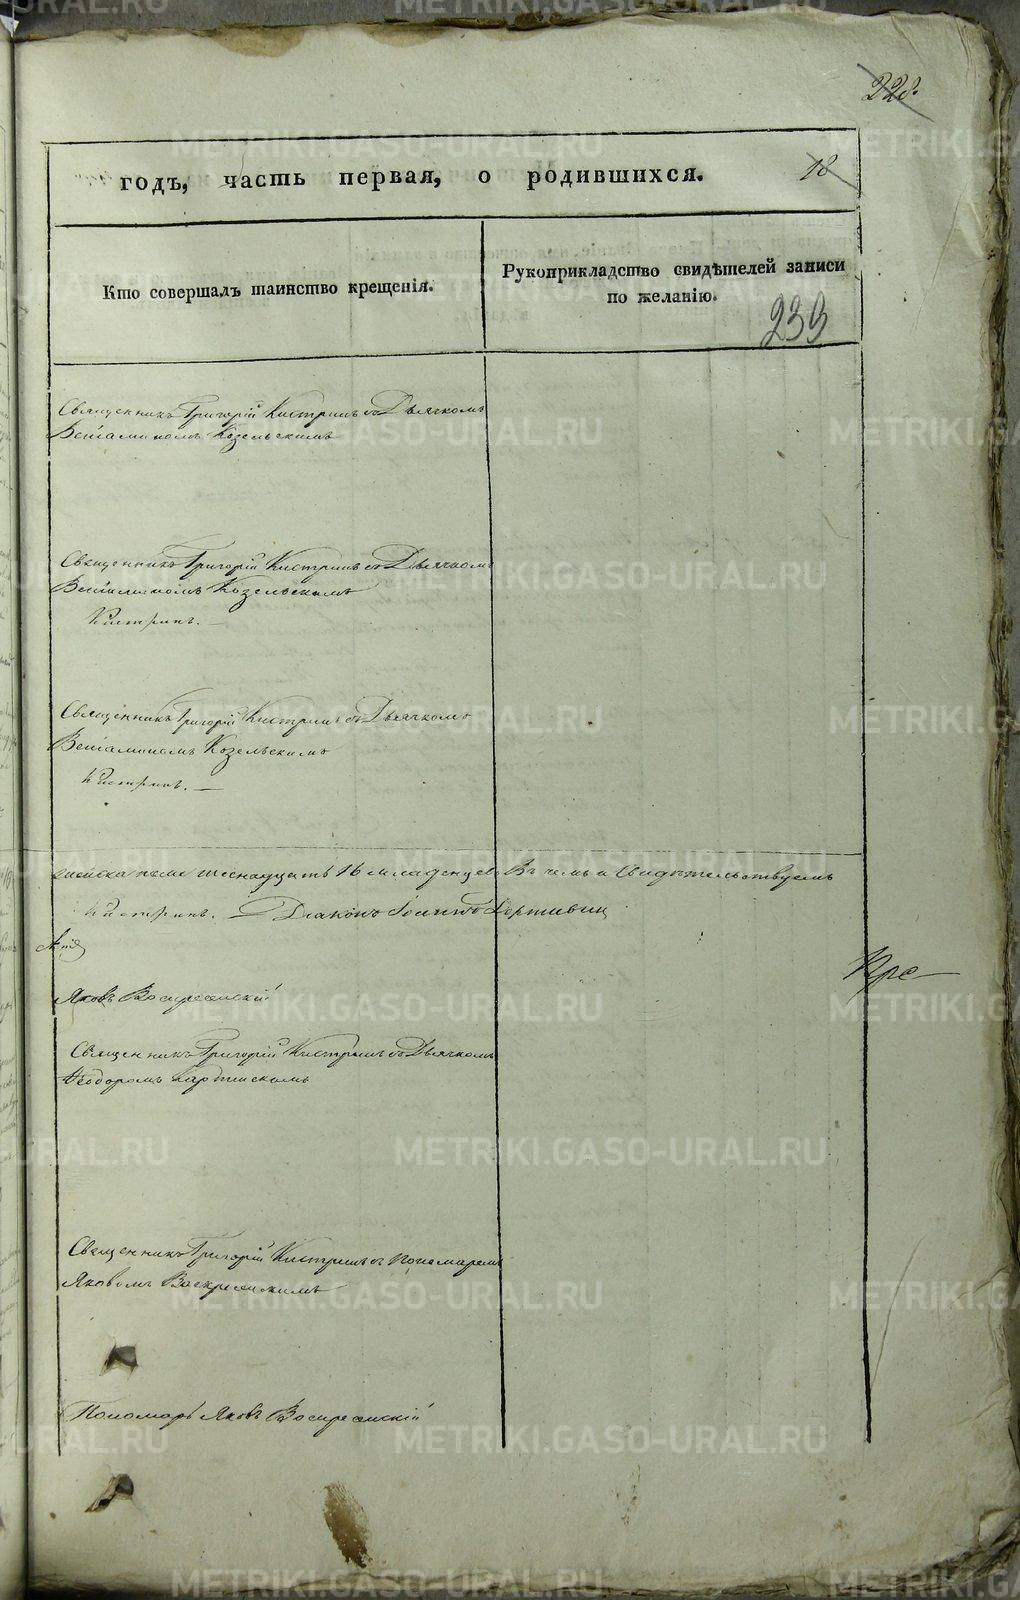 228.
годъ, часть первая, о родившихся.
18
Кто совершалъ таинство крещенія.
Рукоприкладство свидѣтелей записи
по желанію.
239
Священникъ Григорій Кистринъ съ Дьячкомъ
Веніаминомъ Козельскимъ
Священникъ Григорій Кистринъ съ Дьячкомъ
Веніаминомъ Козельскимъ
Кистринъ.
Священникъ Григорій Кистринъ съ Дьячкомъ
Веніаминомъ Козельскимъ
Кистринъ.
пола шеснадцать 16 младенцевъ Въ чемъ и Свидѣтельствуемъ
Кистринъ. Діаконъ Іоаннъ
Яковъ Воскресенскій
Священникъ Григорій Кистринъ съ Дьячкомъ
Ѳеодоромъ
Священникъ Григорій Кистринъ съ Пономаремъ
Яковомъ Воскресенскимъ
Пономарь Яковъ Воскресенскій
METRIKI.GASO-URAL.RU